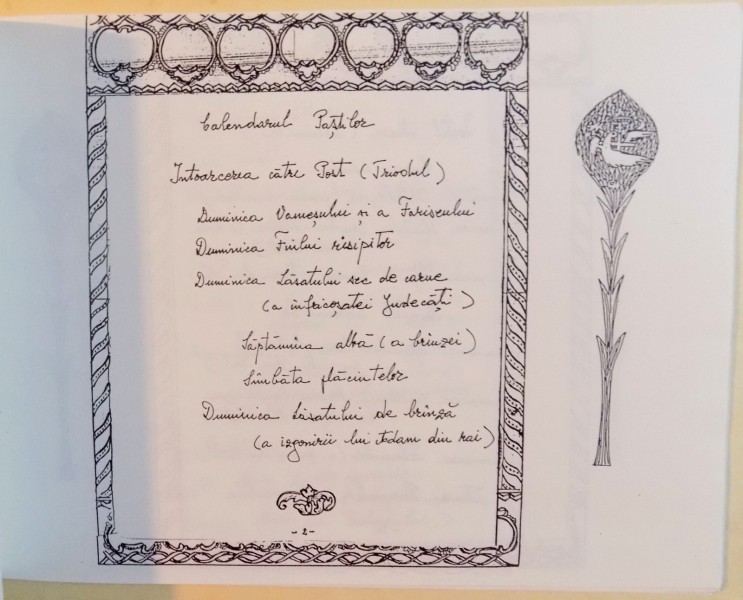 Calendarul Paștilor
Intoarcerea către Post (Triodul)
Duminica Vameșului și a Fariseului
Duminica Fiului risipitor
Duminica Lăsatului sec de carne
(a înfricoșatei Judecăți)
Săptămîna albă (a brînzei)
Sîmbăta plăcintelor
Duminica Lăsatului de brînză
(a izgonirii lui Adam din rai)
-2-